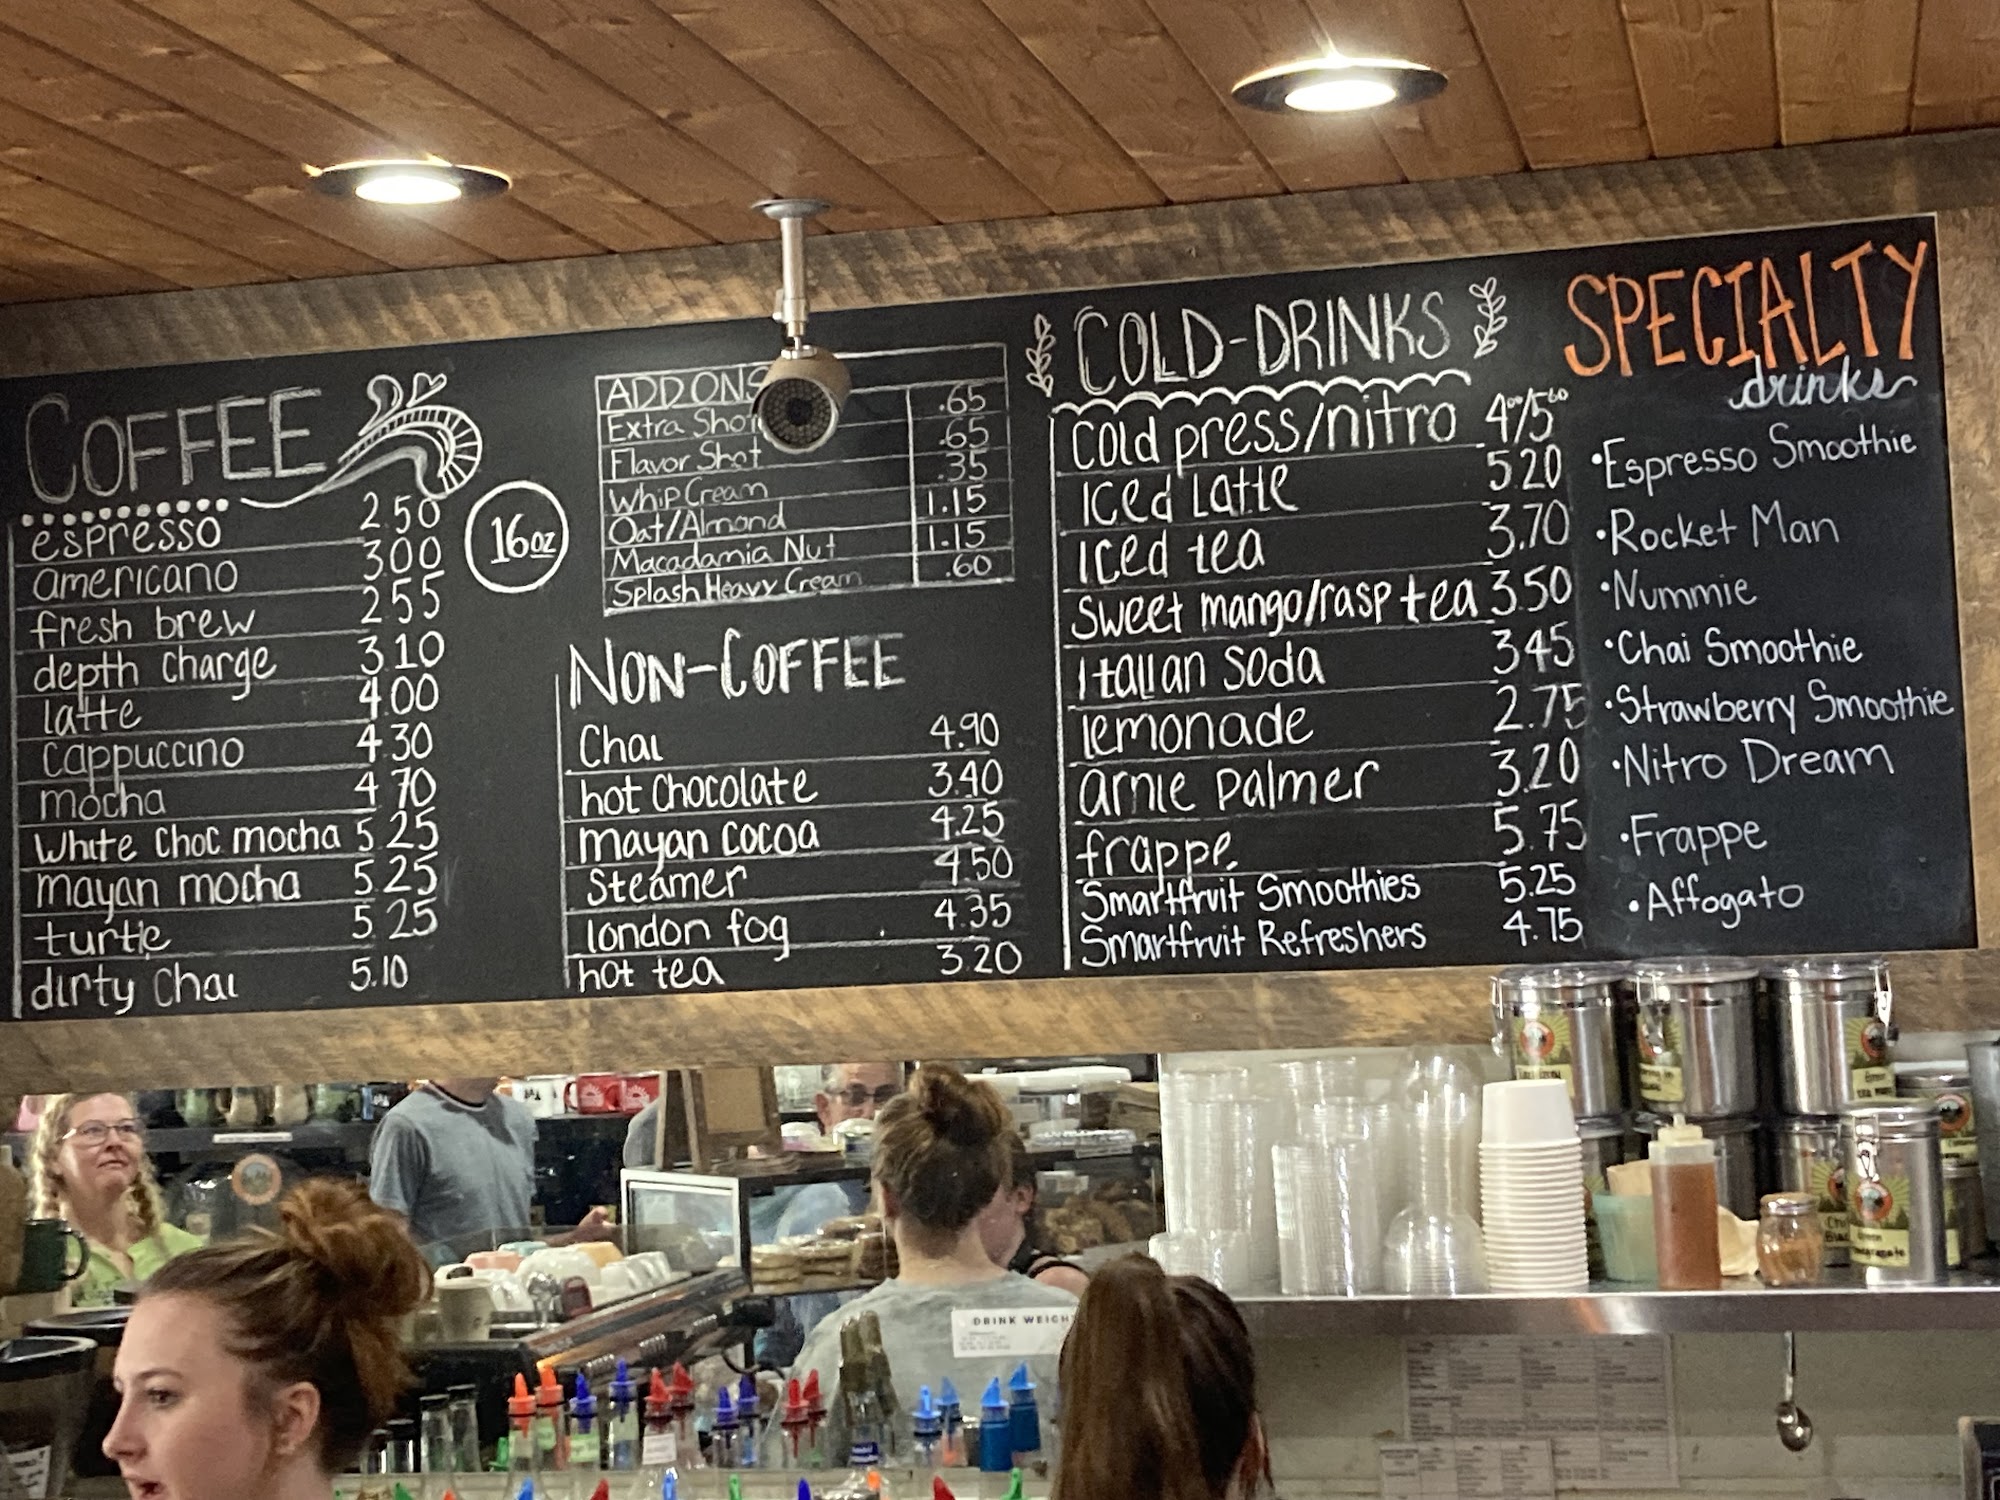 COFFEE
espresso 2.50
americano 3.00
fresh brew 2.55
depth charge 3.10
latte 4.00
cappuccino 4.30
mocha 4.70
white choc mocha 5.25
mayan mocha 5.25
turtle 5.25
dirty chai 5.10
16oz
ADD ONS
Extra Shot .65
Flavor Shot .65
Whip Cream .35
Oat/Almond 1.15
Macadamia Nut 1.15
Splash Heavy Cream .60
NON-COFFEE
Chai 4.90
hot chocolate 3.40
mayan cocoa 4.25
Steamer 4.50
london fog 4.35
hot tea 3.20
COLD-DRINKS
cold press/nitro 4⁰⁰/5⁶⁰
Iced Latte 5.20
Iced tea 3.70
sweet mango/rasp tea 3.50
Italian soda 3.45
lemonade 2.75
arnie palmer 3.20
frappe 5.75
Smartfruit Smoothies 5.25
Smartfruit Refreshers 4.75
SPECIALTY
drinks
•Espresso Smoothie
•Rocket Man
•Nummie
•Chai Smoothie
•Strawberry Smoothie
•Nitro Dream
•Frappe
•Affogato
DRINK WEIGH